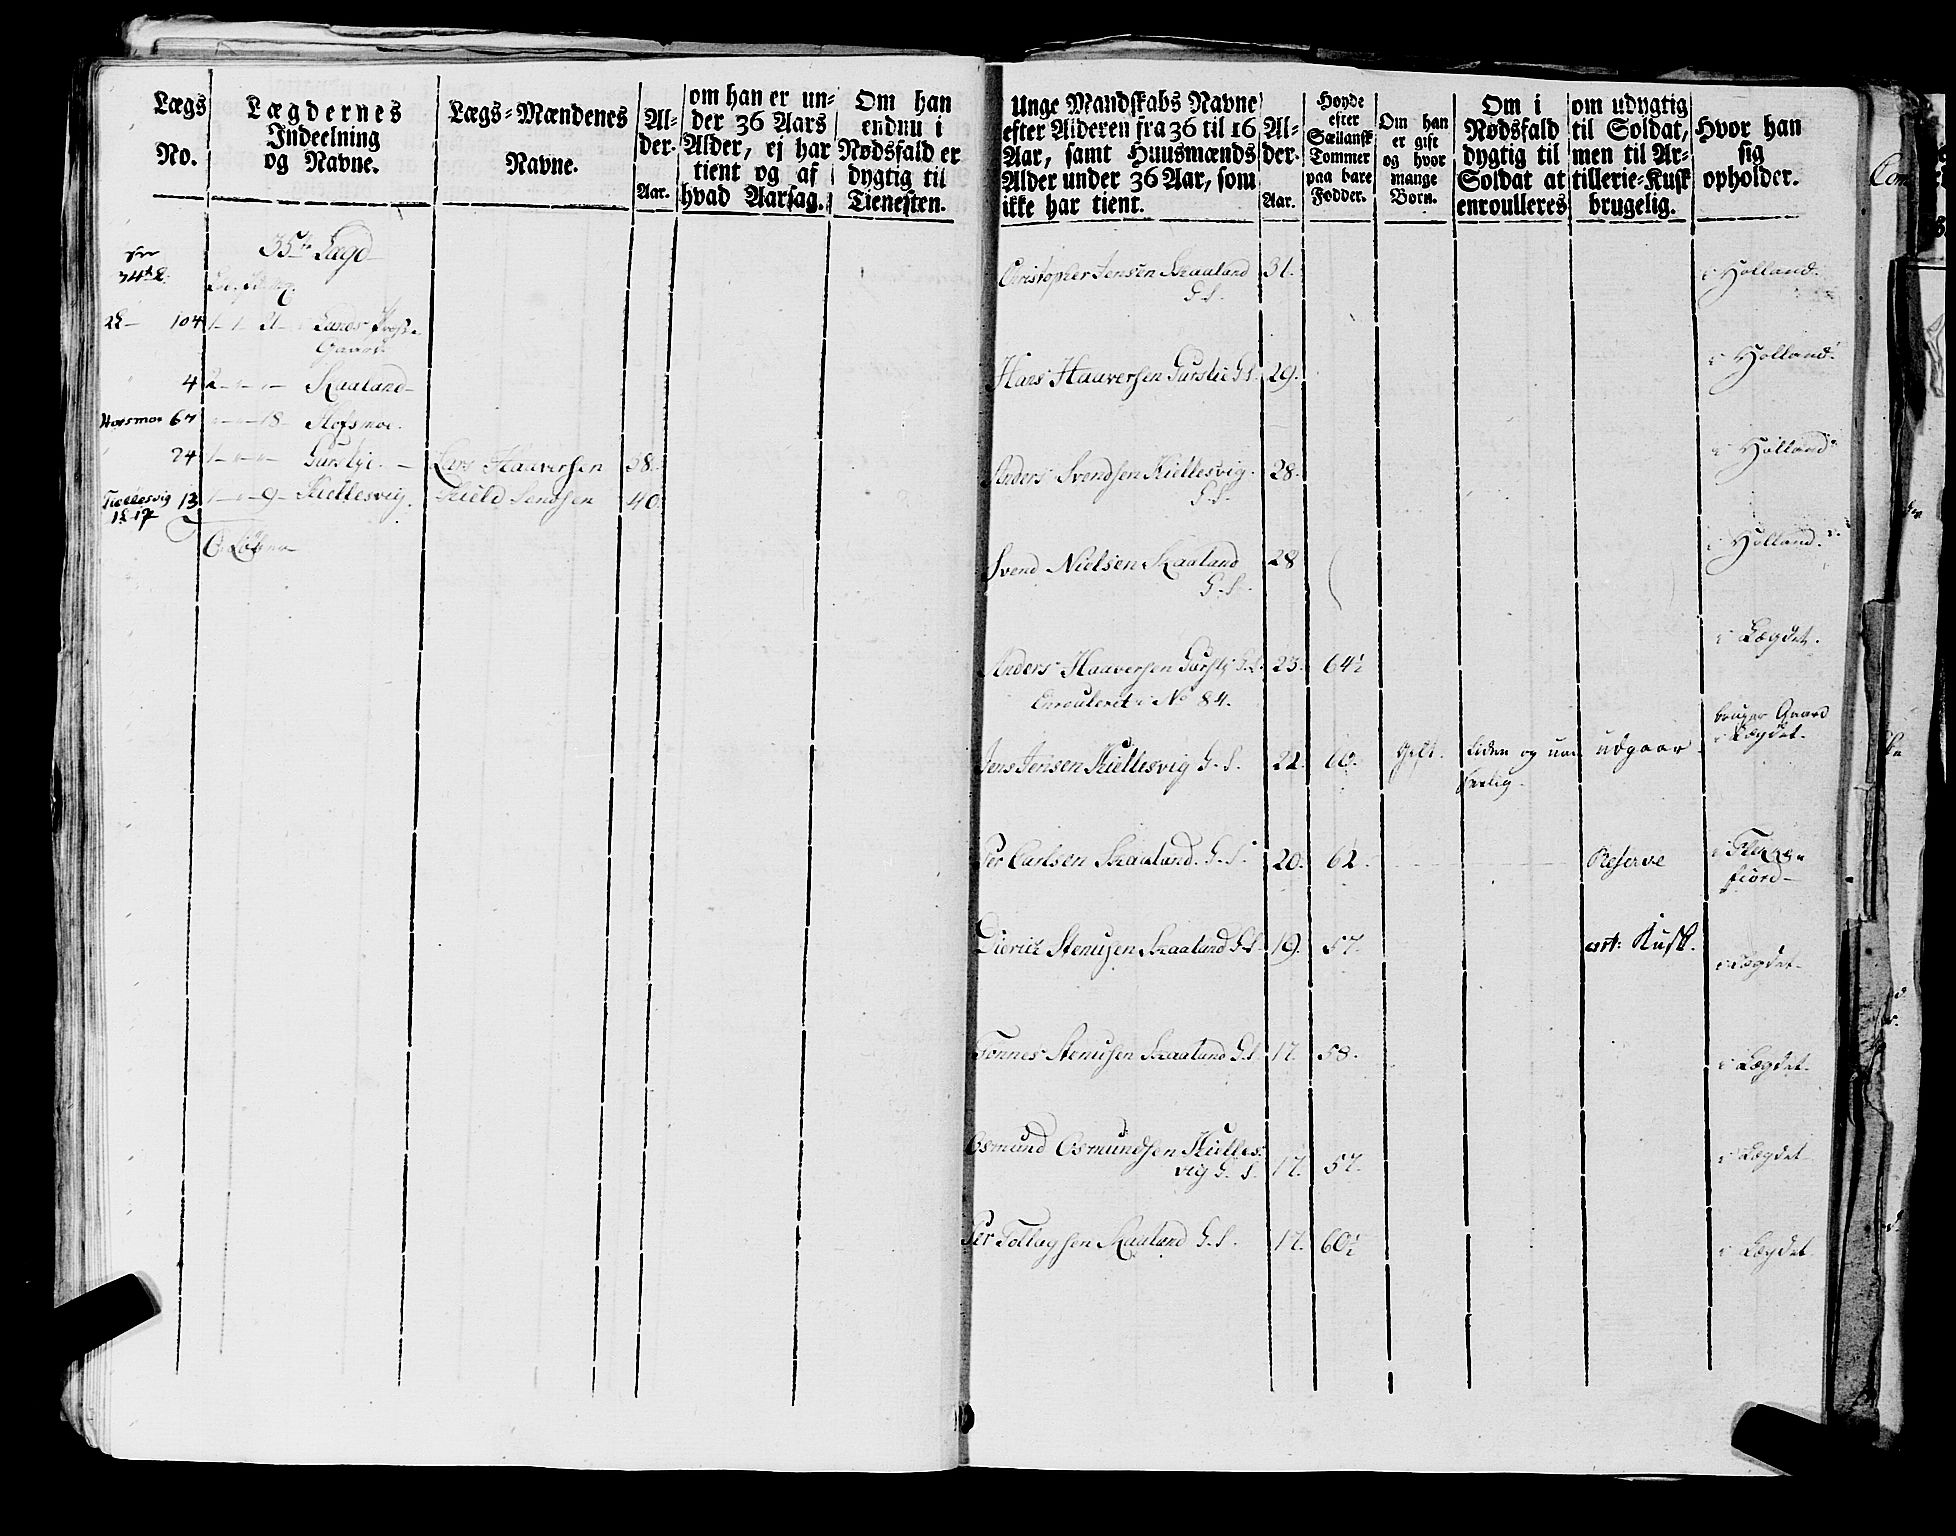 Lægs
No.
Lægdernes
Indeelning
og Navne.
Lægs-Mændenes
Navne.
Al-
der.
Aar.
om han er un-
der 36 Aars
Alder, ej har
tient og af
hvad Aarsag.
Om han
endnu i
Nødsfald er
dygtig til
Tienesten.
35te Lægd
34te L.
104 1- 1- 21-
Gaard.
4 2- Skaaland-
67 18- Hofsmoe.
24 1- Gurslye. - Lars Haaversen 38.
Kiellesvig 13 1- 9- Kiellesvig. Kield Jensen 40.
Unge Mandskabs Navne
efter Alderen fra 36 til 16
Aar, samt Huusmænds
Alder under 36 Aar, som
ikke har tient.
Al-
der.
Aar.
Høyde
efter
Sællansk
Tommer
paa bare
Fødder.
Om han
er gift
og hvor
mange
Børn.
Om i
Nødsfald
dygtig til
Soldat at
enroulleres
om udygtig
til Soldat,
men til Ar-
tillerie-Kusk
brugelig.
Hvor han
sig
opholder.
Christopher Jensen Skaaland 31. i Holland.
G.S.
Hans Haaversen Gurslie G.S. 29. i Holland.
Anders Svendsen Kiellesvig. 28. i Holland.
G.S.
Svend Nielsen Skaaland 28 i Holland.
G.S.
Anders Haaversen Gursly G.S. 23. 64½ i Lægdet.
Enroulerit No 84.
bruger Gaard
i Lægdet.
Jens Jensen Kiellesvig G.S. 22. 60. Gift. liden og udgaar
Per Carlsen Skaaland. G.S. 20. 62. Reserve i Flekke
fiord-
Dierich Stenesen Skaaland G.S. 19. 57. art: Kusk. i Lægdet.
Tønnes Stenesen Skaaland G.S. 17. 58. i Lægdet.
Osmund Osmundsen Kielles-
vig G.S. 17. 57. i Lægdet
Per Tollagsen Skaaland G.S. 17. 60½ i Lægdet.